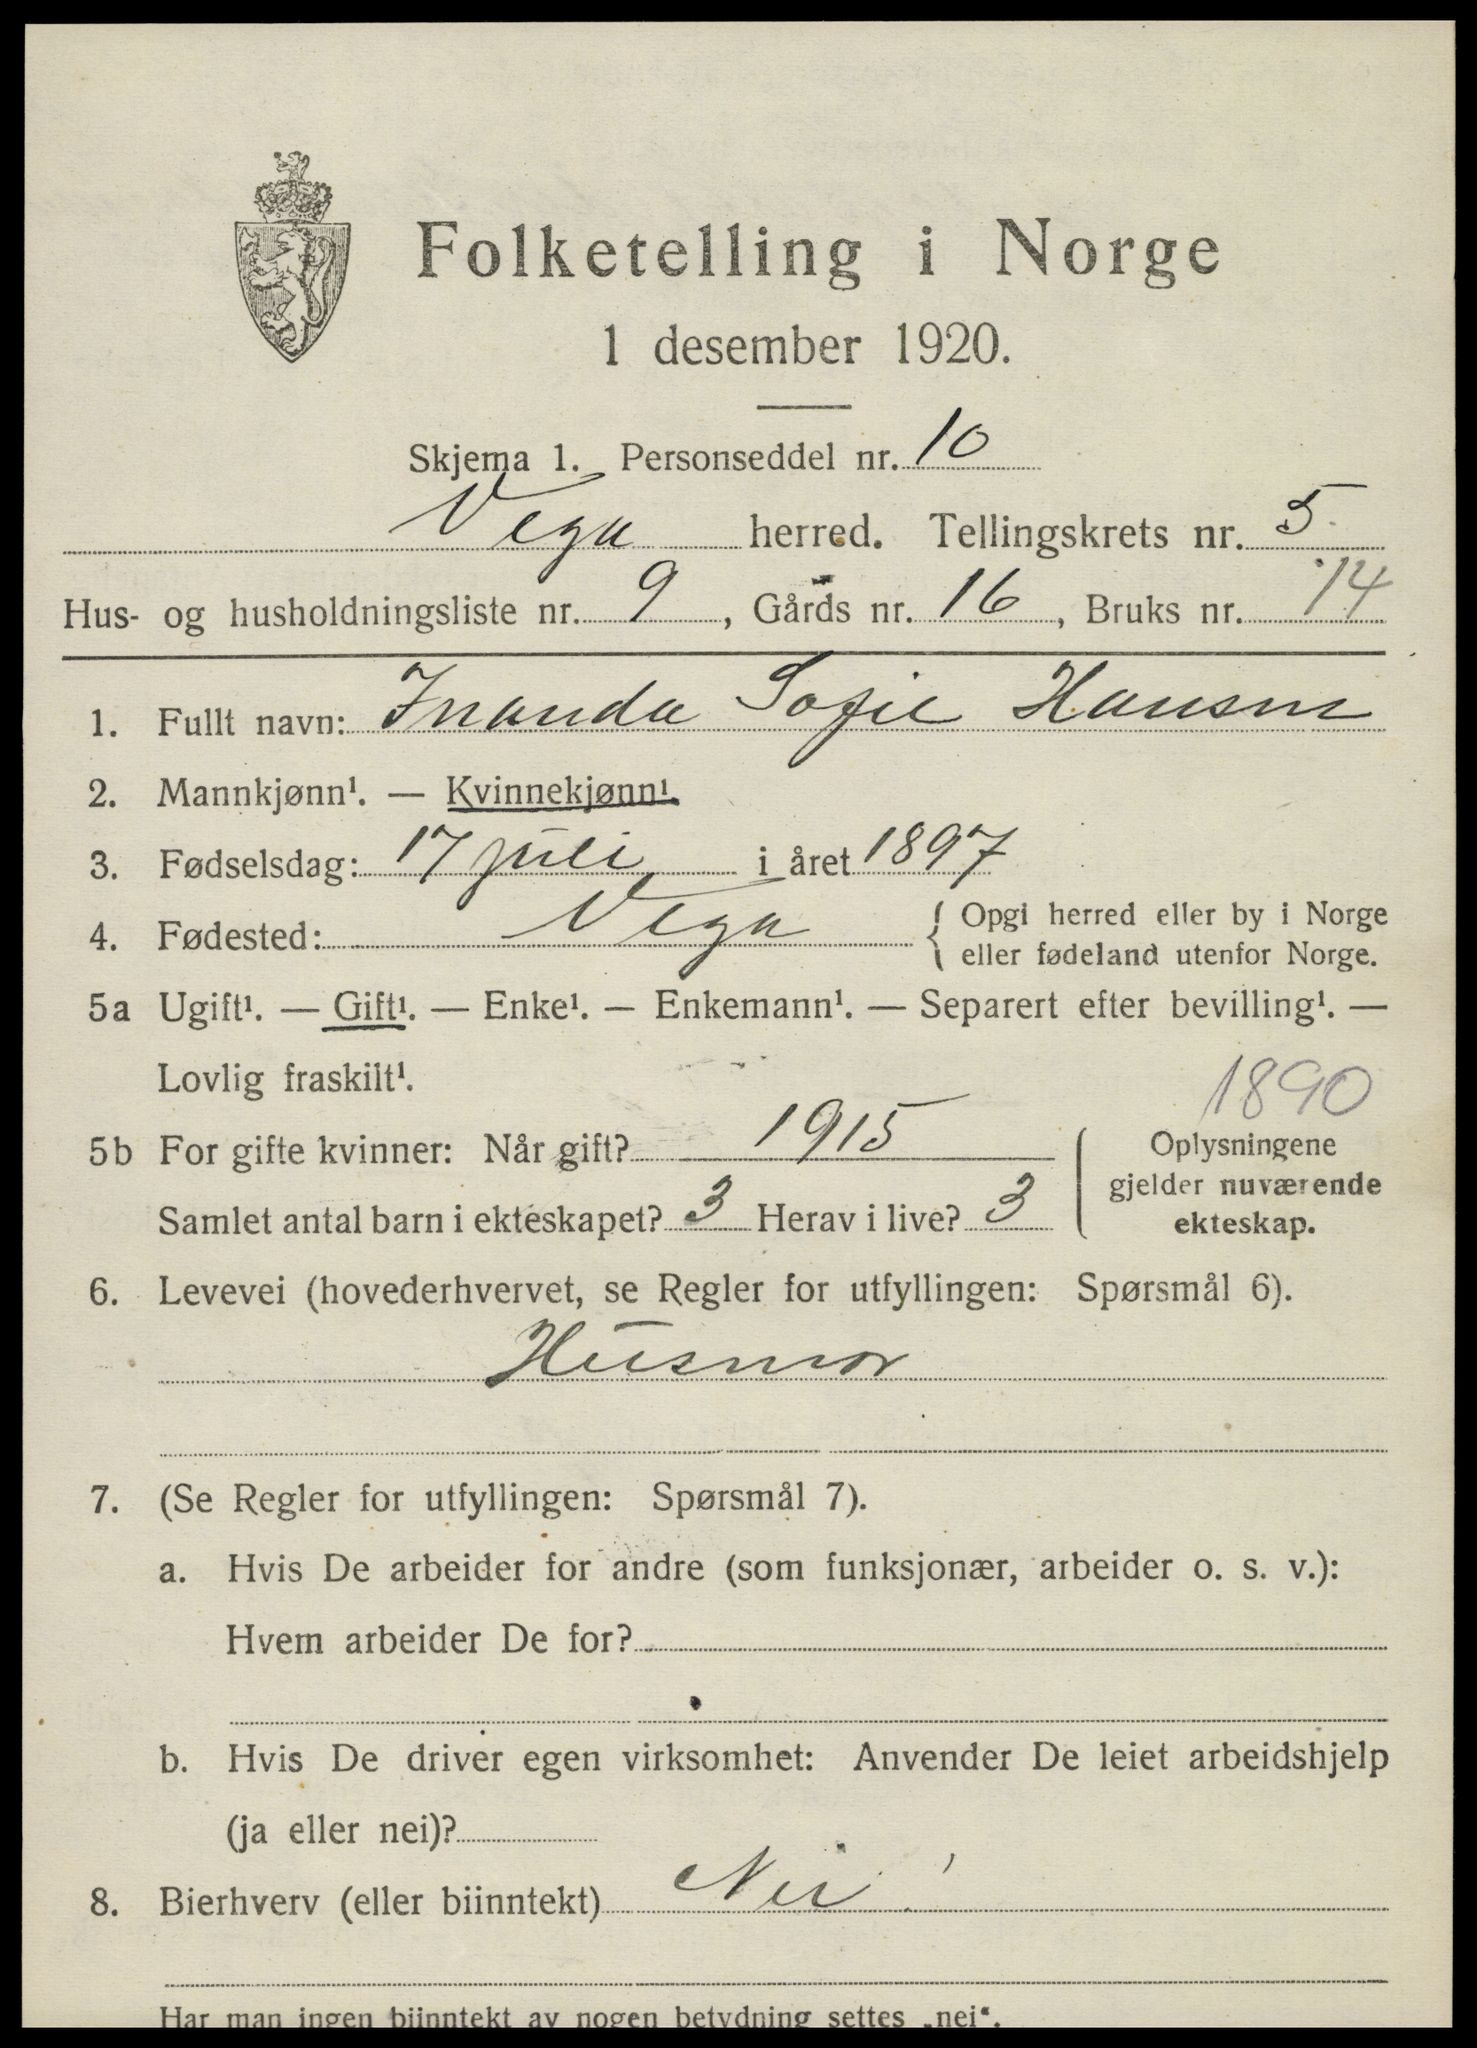 Folketelling i Norge
1 desember 1920.
Skjema 1. Personseddel nr. 10
Vega herred. Tellingskrets nr. 5
Hus- og husholdningsliste nr. 9, Gårds nr. 16, Bruks nr. 14
1. Fullt navn: Inanda Sofie Hansen
2. Mannkjønn¹. — Kvinnekjønn¹.
3. Fødselsdag: 17 juli i året 1897
4. Fødested: Vega { Opgi herred eller by i Norge
eller fødeland utenfor Norge.
5a Ugift¹. — Gift¹. — Enke¹. — Enkemann¹. — Separert efter bevilling¹. —
Lovlig fraskilt¹.
1890
5b For gifte kvinner: Når gift? 1915
Samlet antal barn i ekteskapet? 3 Herav i live? 3
Oplysningene
gjelder nuværende
ekteskap.
6. Levevei (hovederhvervet, se Regler for utfyllingen: Spørsmål 6).
Husmor
7. (Se Regler for utfyllingen: Spørsmål 7).
a. Hvis De arbeider for andre (som funksjonær, arbeider o. s. v.):
Hvem arbeider De for?
b. Hvis De driver egen virksomhet: Anvender De leiet arbeidshjelp
(ja eller nei)?
8. Bierhverv (eller biinntekt) Nei
Har man ingen biinntekt av nogen betydning settes „nei“.